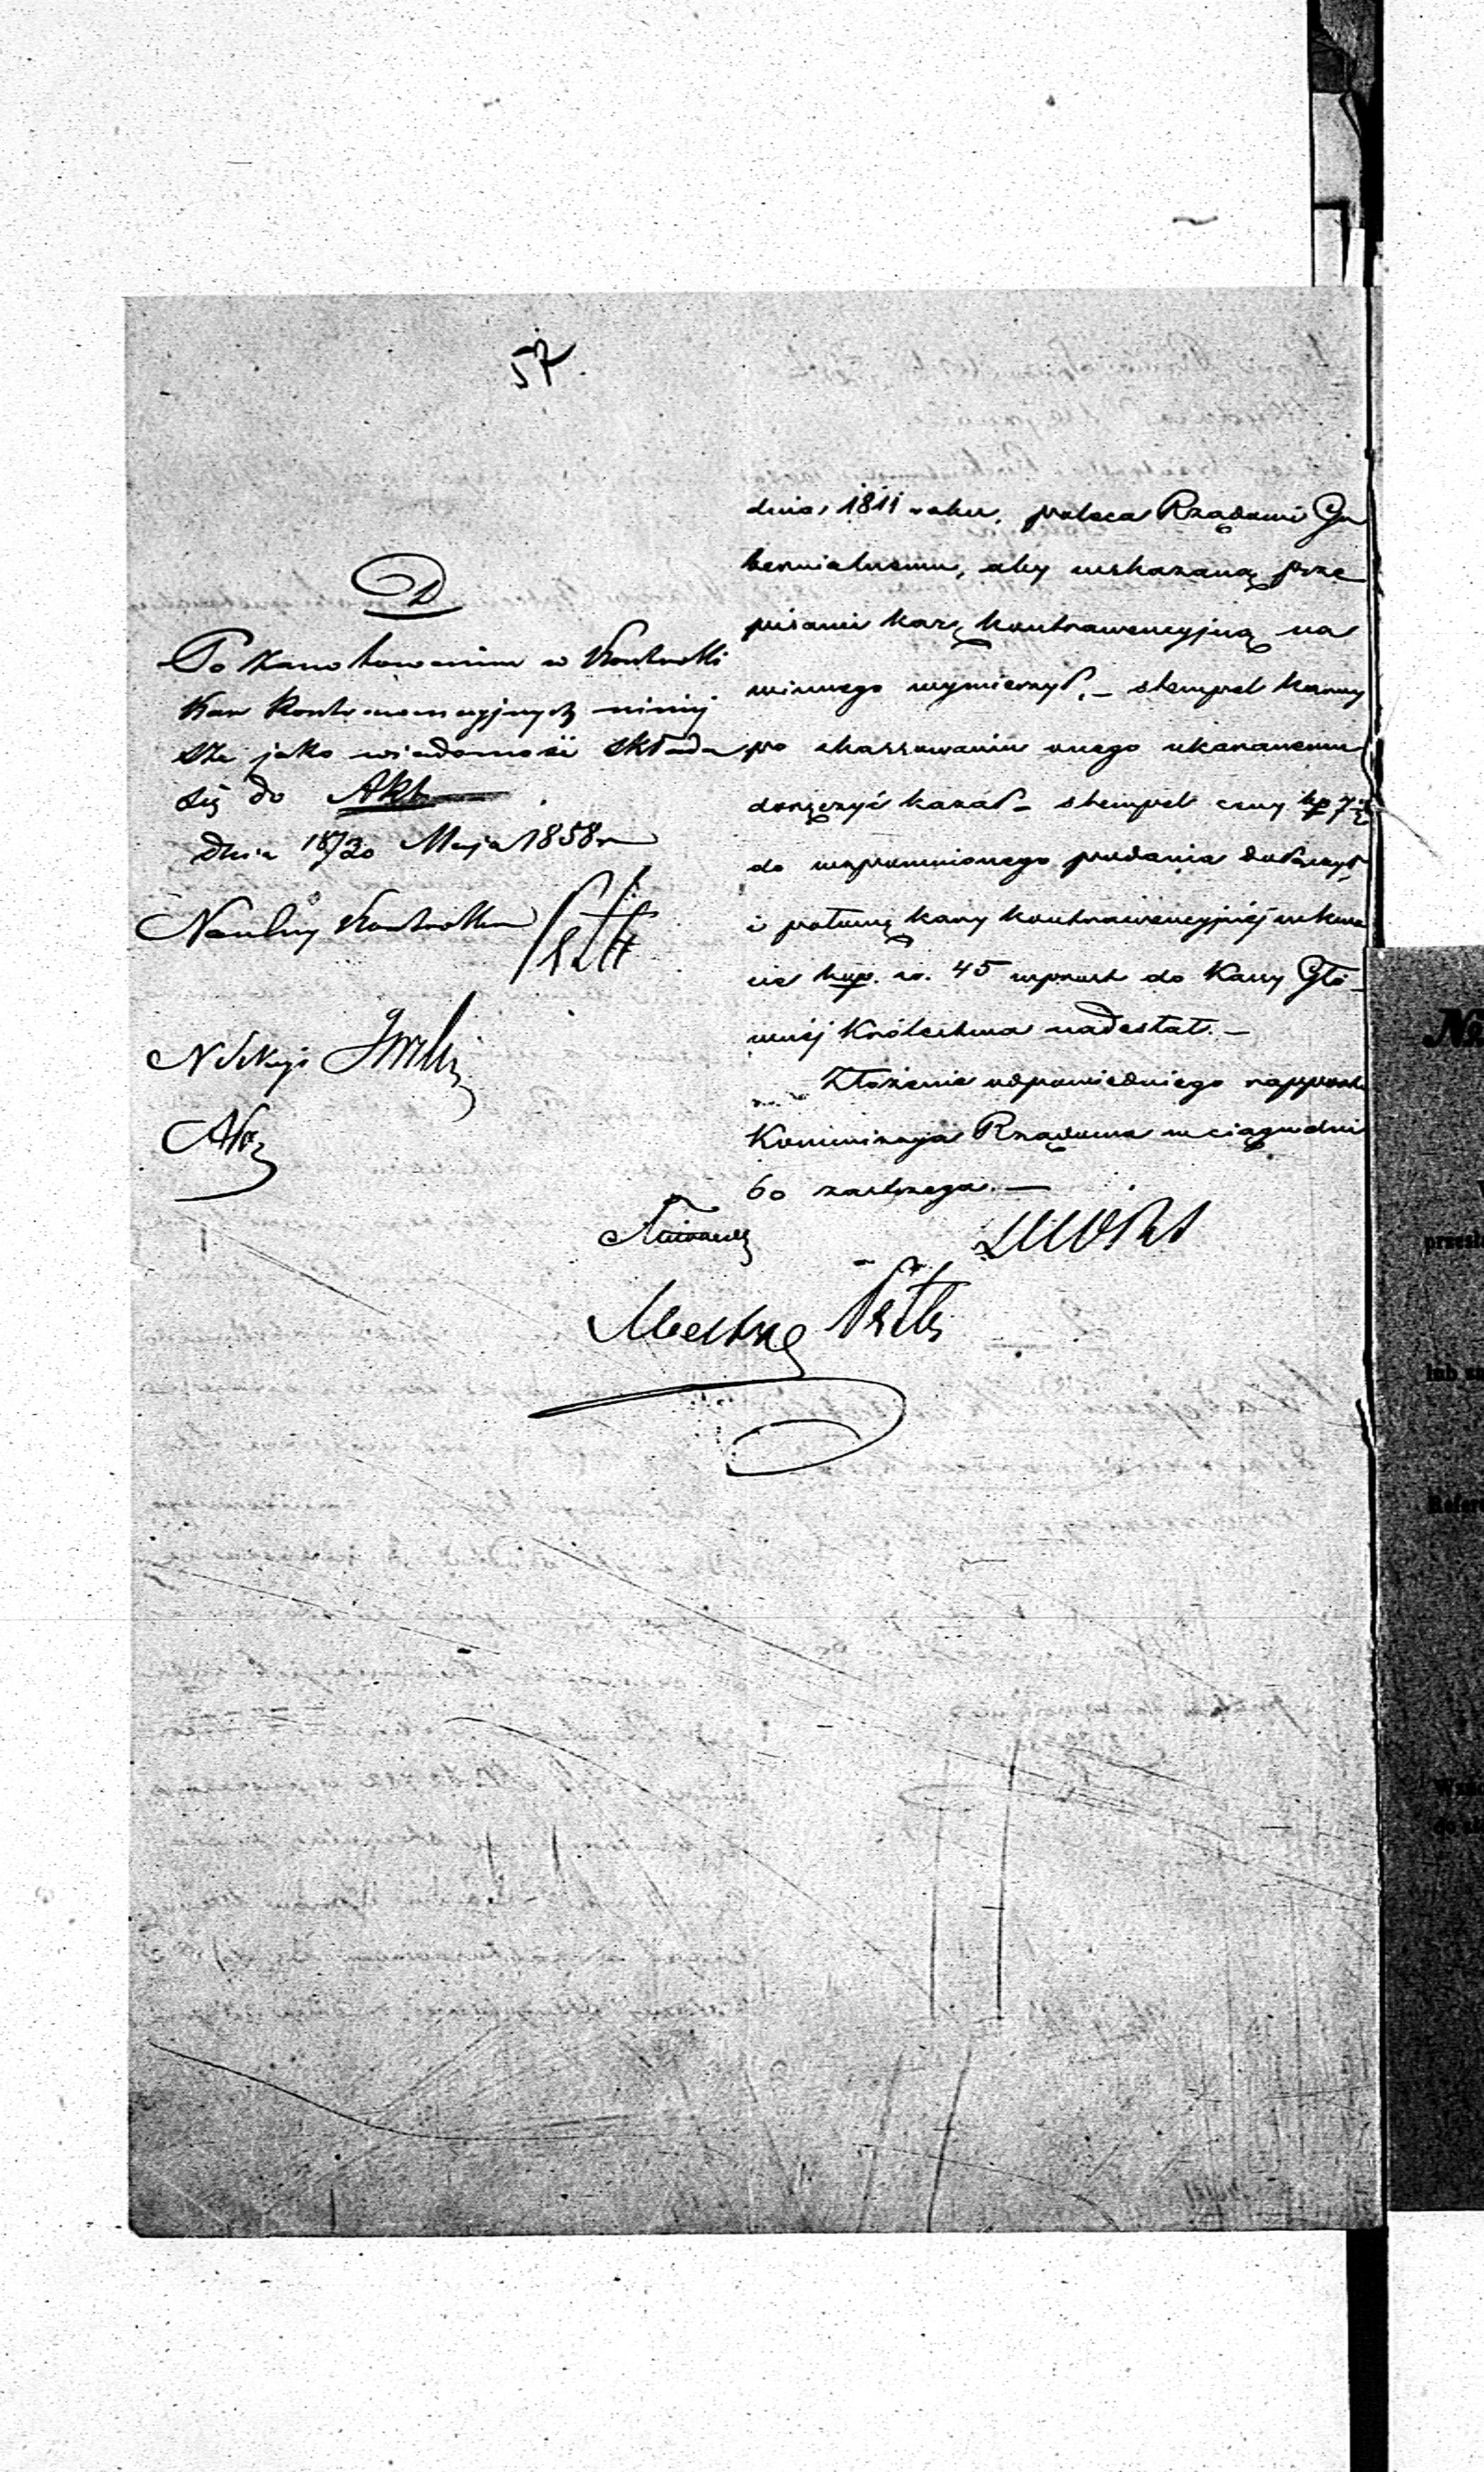 57.
D
Po zanotowaniu w Kontrolli
Kar Kontrawencyjnych niniej
sze jako wiadomość składa
się do Akt
dnia 18/30 Maja 1858 r
Naczelny Kontroller
N Sekcji
dnia 1811 roku, poleca Rządowi Gu
bernialnemu, aby wskazaną prze
pisami karę kontrawencyjną na
winnego wymierzył, – stempel karny
po skassowaniu onego ukaranemu
doręczyć kazał – stempel ceny kp 7½
do wspomnionego podania dołączył
i połowę kary kontrawencyjnej w kwo
cie kop. sr. 45 wprost do Kassy Głó-
wnej Królestwa nadesłał. –
Złożenie odpowiedniego rapportu
Kommissya Rządowa w ciągu dni
60 zastrzega. –